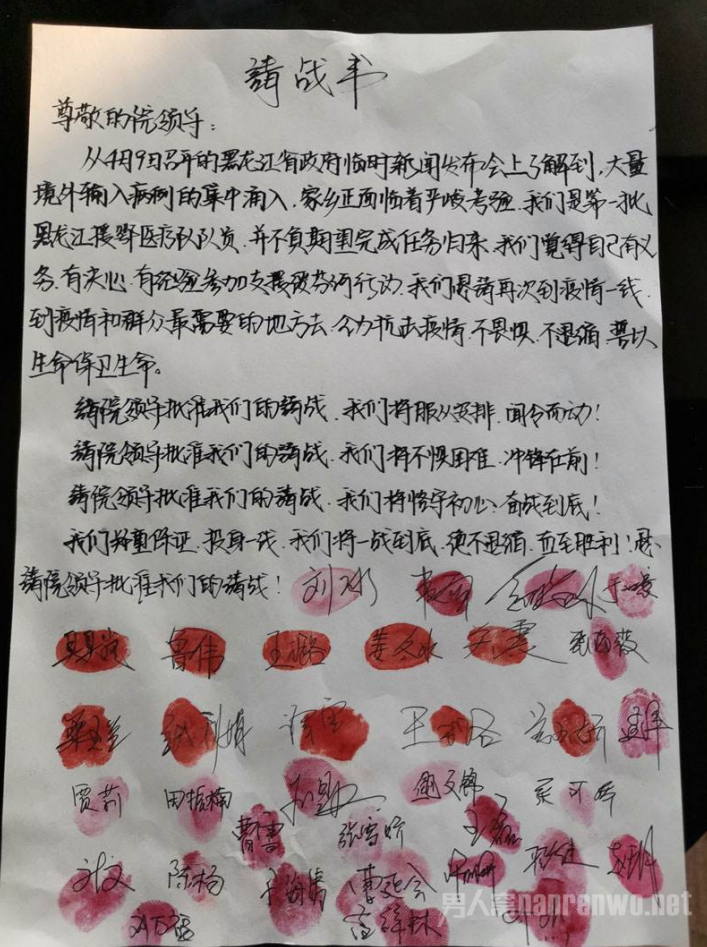 請战书
尊敬的院领导:
从4月9日召开的黑龙江省政府临时新闻发布会上了解到,大量
境外输入病例的集中涌入,家乡正面临着严峻考验,我们是第一批
黑龙江援鄂医疗队队员,并不负期望完成任务归来,我们觉得自己有义
务、有决心、有经验参加支援绥芬河行动,我们恳請再次到疫情一线,
到疫情和群众最需要的地方去,全力抗击疫情,不畏惧、不退缩,誓以
生命保卫生命。
請院领导批准我们的請战,我们将服从安排,闻令而动!
請院领导批准我们的請战,我们将不惧困难,冲锋在前!
請院领导批准我们的請战,我们将恪守初心,奋战到底!
我们郑重保证,投身一线,我们将一战到底,绝不退缩,直至胜利!恳
請院领导批准我们的請战! 刘冰
鲁伟 王璐 姜冬冰
王
贾莉 田振楠
曹雪 张雪娇 王磊
刘文 陈杨 于海 曹延会
男人拿nanrenwo.net